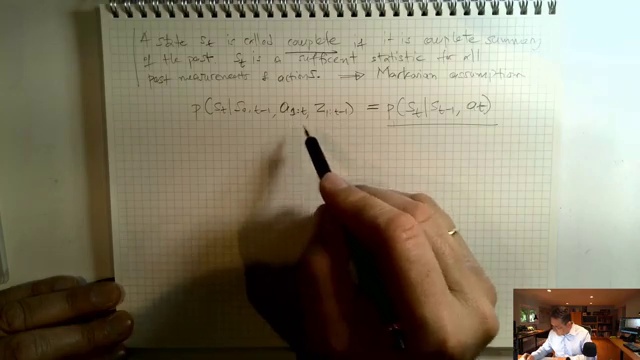 A state St is called complete if it is complete summary
of the past St is a sufficent statistic for all
past measurements & actions. ⟹ Markovian assumption
p(St|S0:t-1, a1:t, Z1:t-1) = p(St|St-1, at)